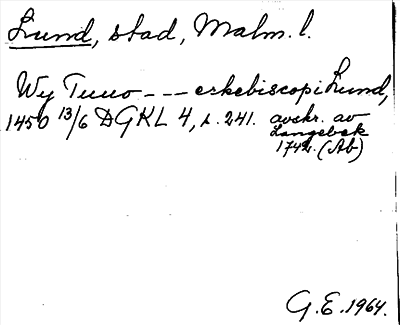 Lund, stad, Malm. l.
Wy Tuuo --- erkebiscopi Lund,
1450 13/6 DGKL 4, s. 241. avskr. av
Langebek
1742. (Ab)
G.E. 1964.